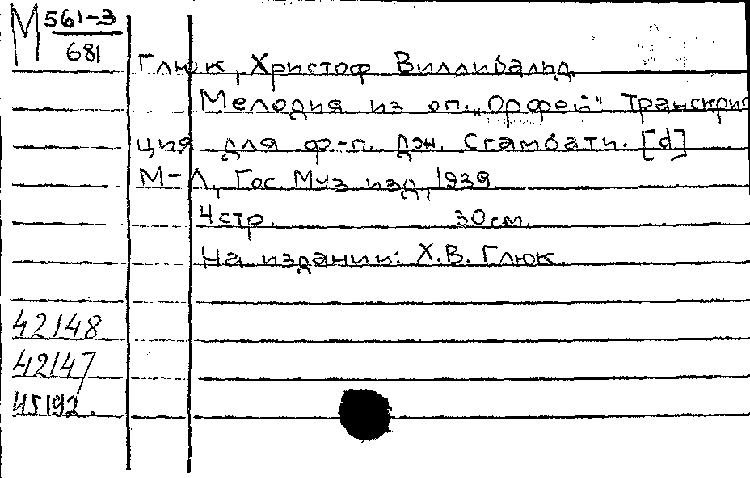 М 561-3
681
Глюк, Христоф Виллибальд
Мелодия из оп. „Орфей“ Транскрип
ция для ф.-п. Дж. Сгамбати. [d]
М-Л, Гос. Муз изд, 1939
4 стр. 30 см.
На издании: Х.В. Глюк.
42148
42147
45192.